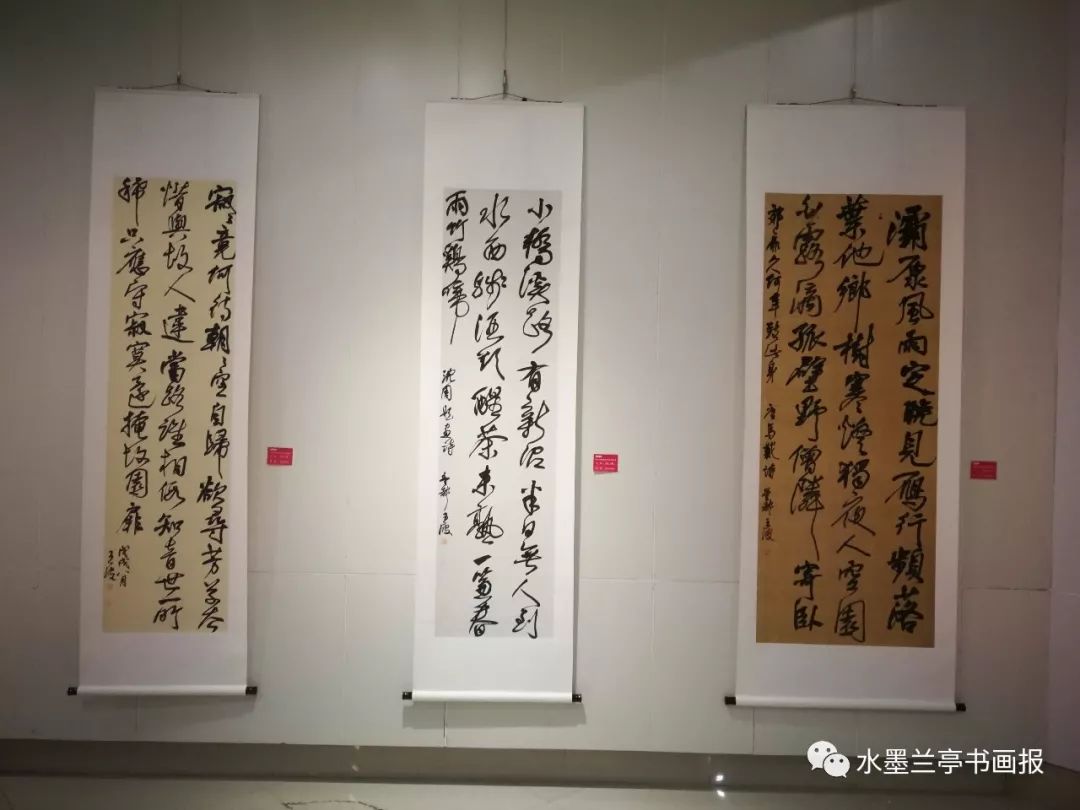 寂〻竟何待朝〻空自歸欲尋芳草去
惜與故人違當路誰相假知音世所
稀只應守寂寞還掩故園扉
戊戌八月
王波
小橋溪路有新泥半日無人到
水西殘酒欲醒茶未熟一簾春
雨竹鷄啼
沈周題畫詩 王波
灞原風雨定晚見鴈行頻落
葉他鄉樹寒燈獨夜人空園
白露滴孤壁野僧隣寄臥
郊扉久何年致此身 唐馬戴詩 王波
水墨兰亭书画报